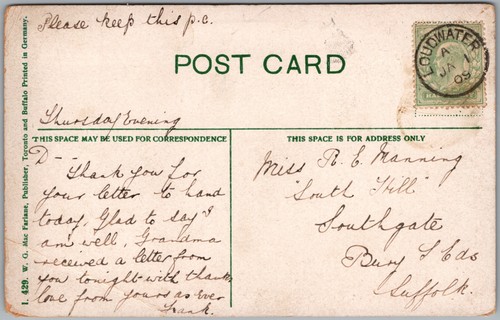 Please keep this p.c.
POST CARD
LOUDWATER
A
JA 1
09
Thursday Evening
THIS SPACE MAY BE USED FOR CORRESPONDENCE
THIS SPACE IS FOR ADDRESS ONLY
D--
Thank you for
your letter to hand
today, Glad to say "I
am" well, Grandma
received a letter from
you tonight with thanks
love from yours as Ever
Frank.
Miss R. E. Manning
"South Hill"
Southgate
Bury S Eds
Suffolk.
I. 429. W. G. Mac Farlane, Publisher, Toronto and Buffalo Printed in Germany.